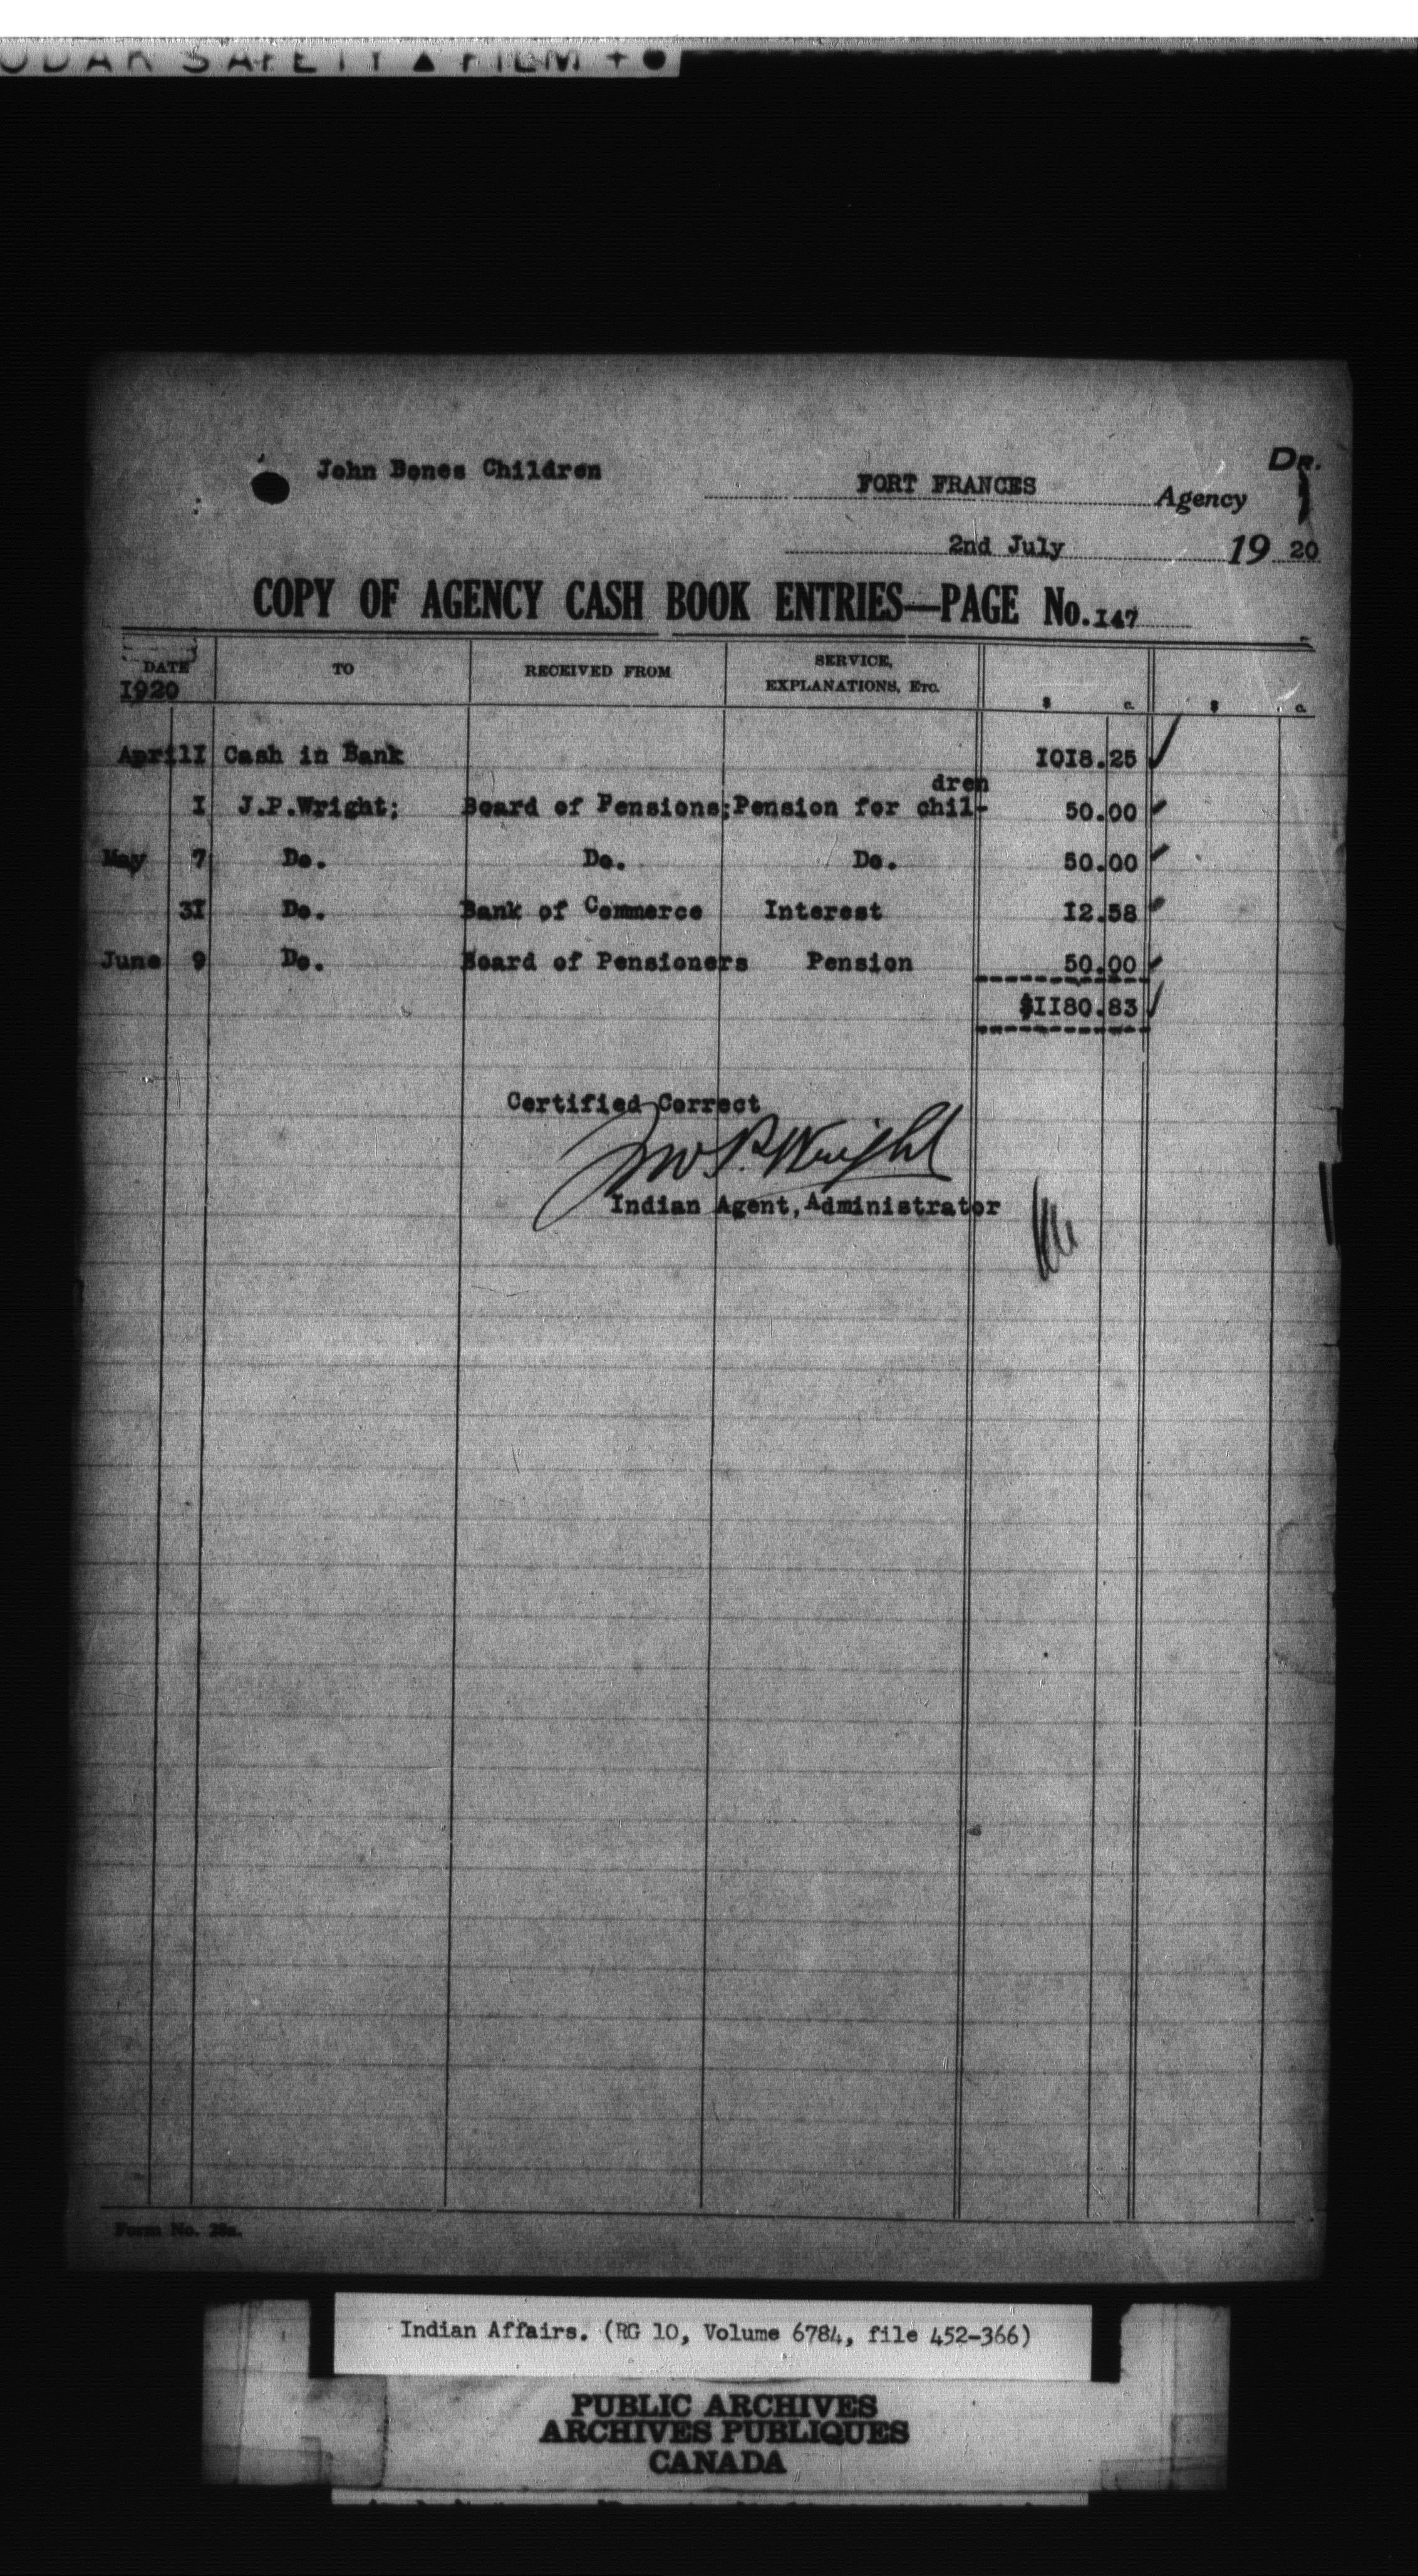 SAFETY ▲ FILM + ●
John Bones Children
DR.
FORT FRANCES Agency
2nd July 19 20
COPY OF AGENCY CASH BOOK ENTRIES—PAGE No. 147
DATE TO RECEIVED FROM SERVICE, EXPLANATIONS, ETC. $ c. $ c.
1920
April 1I Cash in Bank 1018.25
dren
I J.P.Wright; Board of Pensions; Pension for chil- 50.00
May 7 Do. Do. Do. 50.00
31 Do. Bank of Commerce Interest 12.58
June 9 Do. Board of Pensioners Pension 50.00
$1180.83
Certified Correct
Jno P. Wright
Indian Agent, Administrator
Form No. 28a.
Indian Affairs. (RG 10, Volume 6784, file 452-366)
PUBLIC ARCHIVES
ARCHIVES PUBLIQUES
CANADA